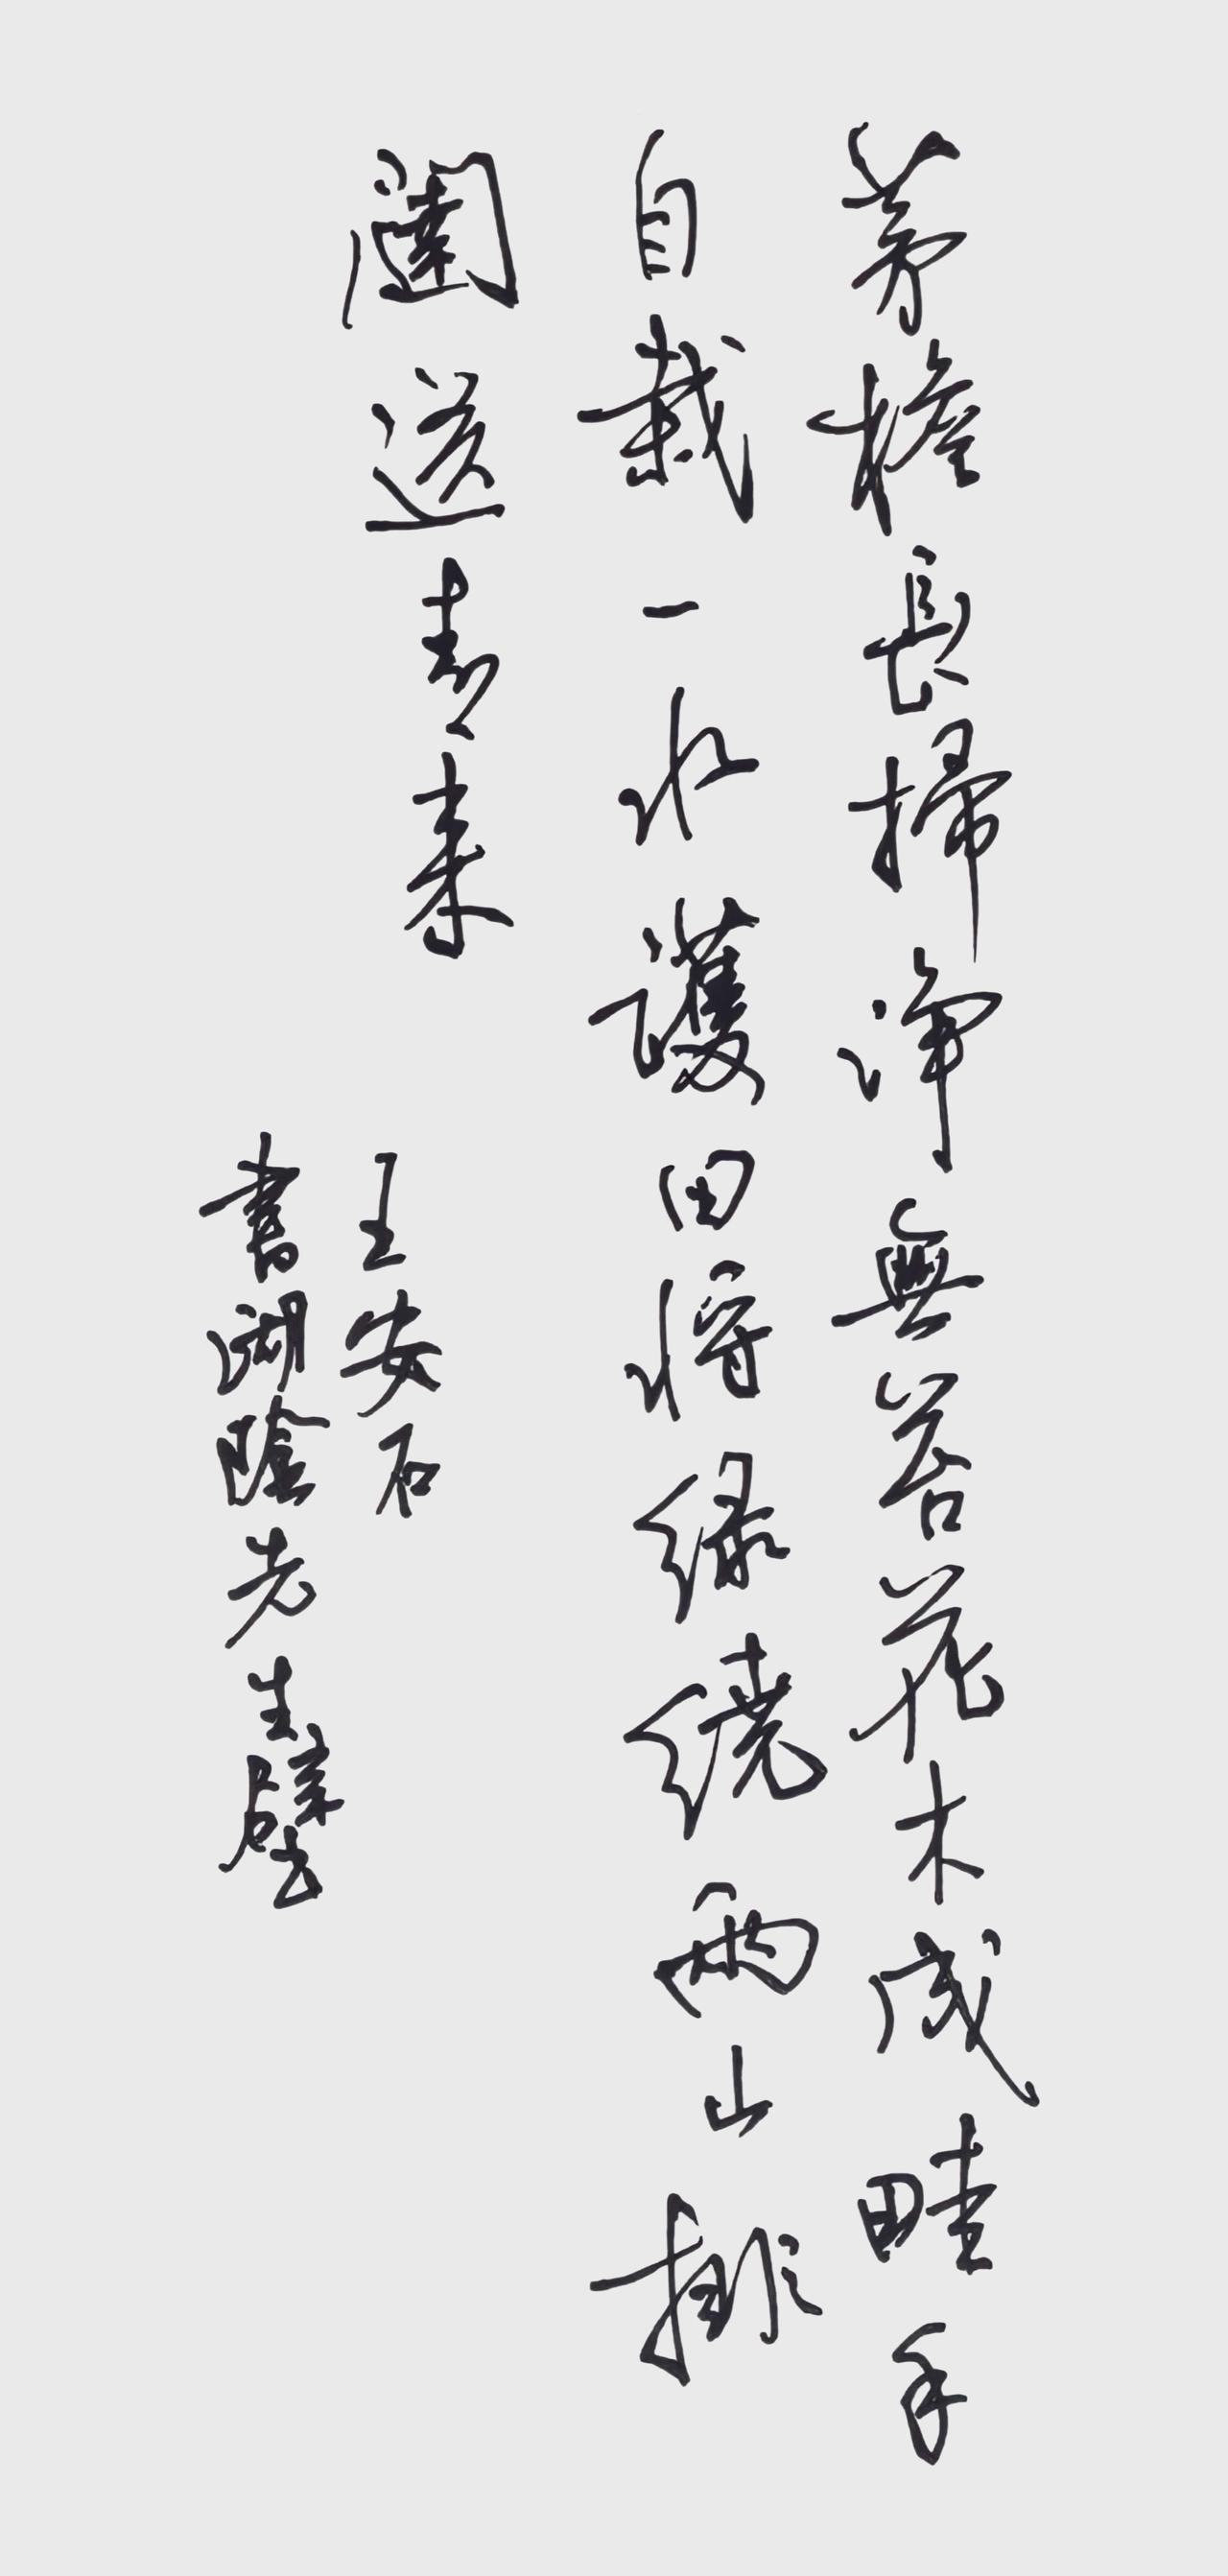 茅檐長掃淨無苔花木成畦手
自栽一水護田将緑繞兩山排
闥送青来
王安石
書湖陰先生壁